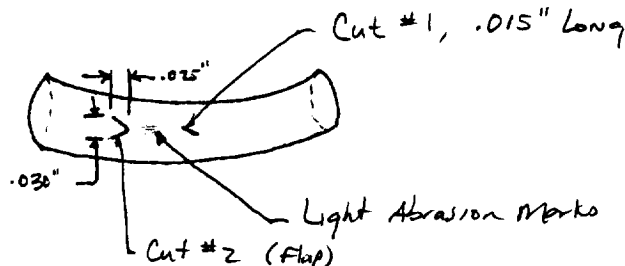 Cut #1, .015" Long
.025"
.030"
Light Abrasion Marks
Cut #2 (Flap)